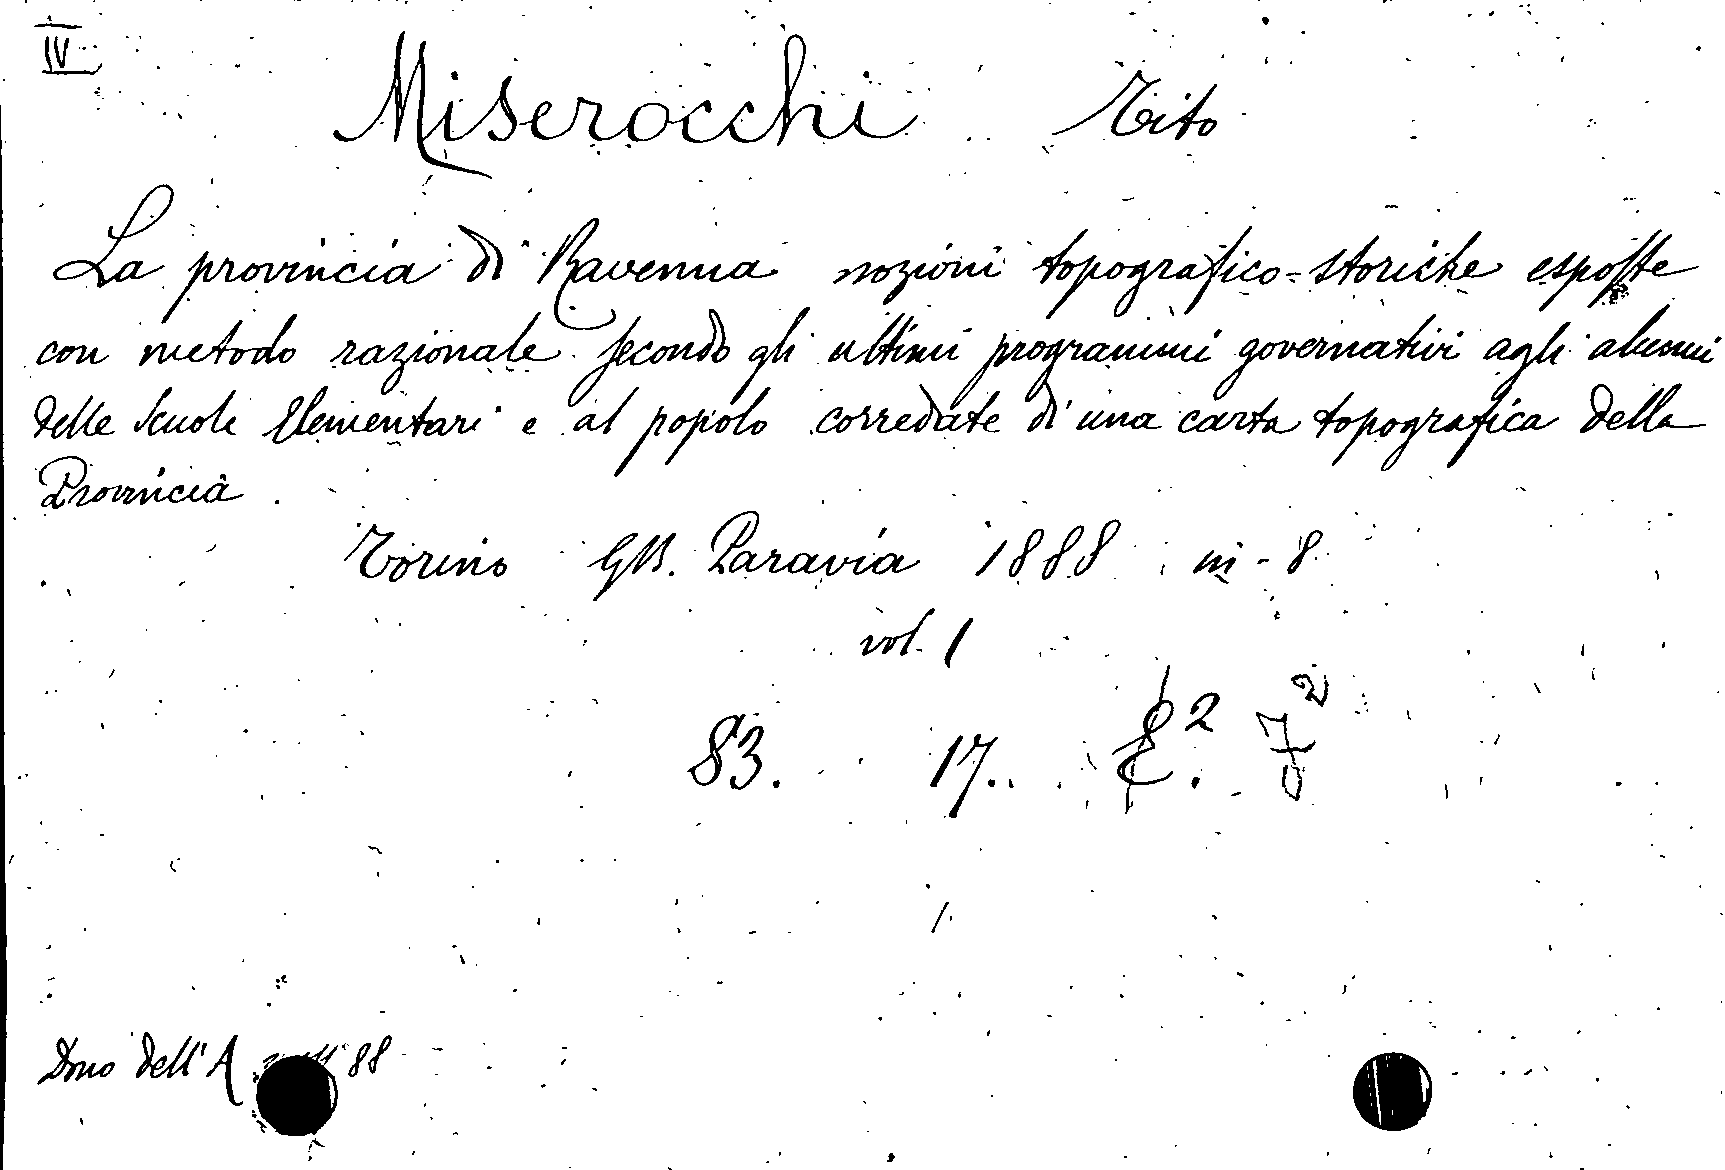 IV
Miserocchi Tito
La provincia di Ravenna nozioni topografico=storiche esposte
con metodo razionale secondo gli ultimi programmi governativi agli alunni
delle Scuole Elementari e al popolo corredate di una carta topografica della
Provincia.
Torino GB. Paravia 1888 in-8
vol. 1
83. 17.
Dono dell'A 88